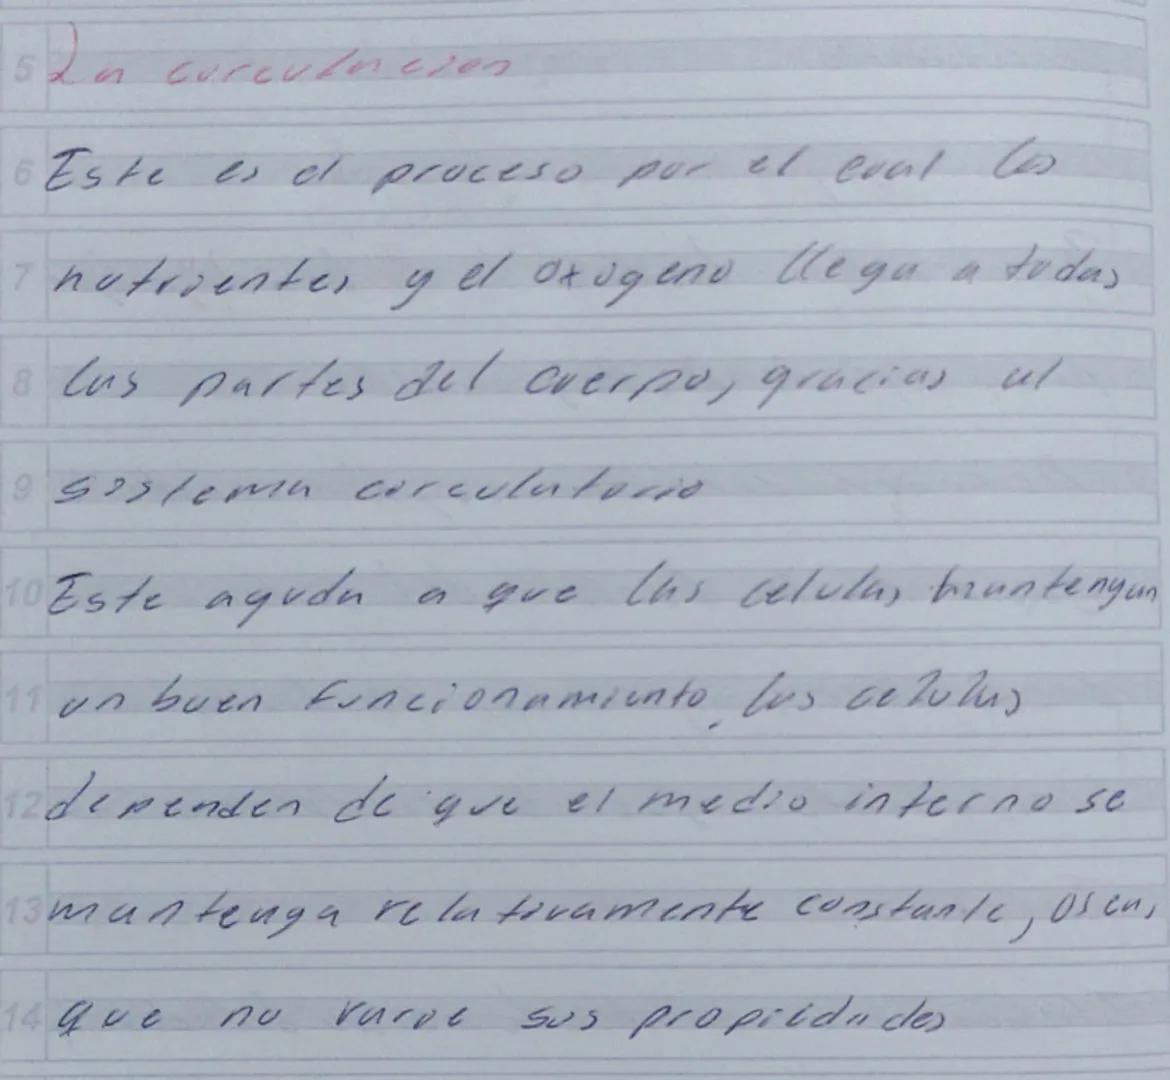 5 La circulacion
6 Este es el proceso por el cual los
7 nutrientes y el oxigeno llega a todas
8 las partes del cuerpo, gracias al
9 sistema circulatorio
10 Este ayuda a que las celulas mantengan
11 un buen funcionamiento, las celulas
12 dependen de que el medio interno se
13 mantenga relativamente constante, osea,
14 que no varie sus propiedades